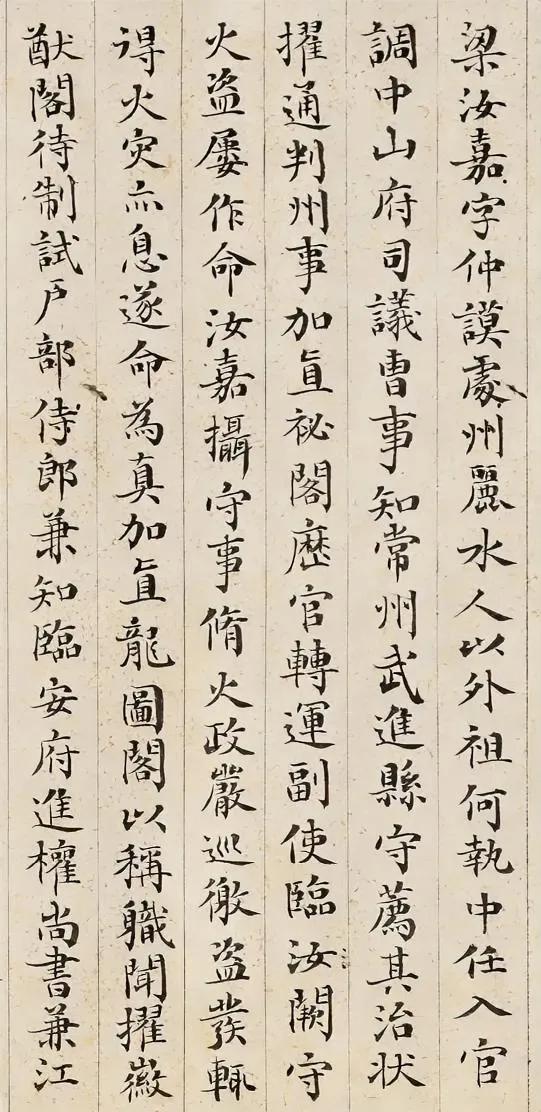 梁汝嘉字仲謨處州麗水人以外祖何執中任入官
調中山府司議曹事知常州武進縣守薦其治狀
擢通判州事加直祕閣歷官轉運副使臨汝闕守
火盜屢作命汝嘉攝守事脩火政嚴巡徼盜發輒
得火灾亦息遂命為真加直龍圖閣以稱職聞擢徽
猷閣待制試戶部侍郎兼知臨安府進權尚書兼江